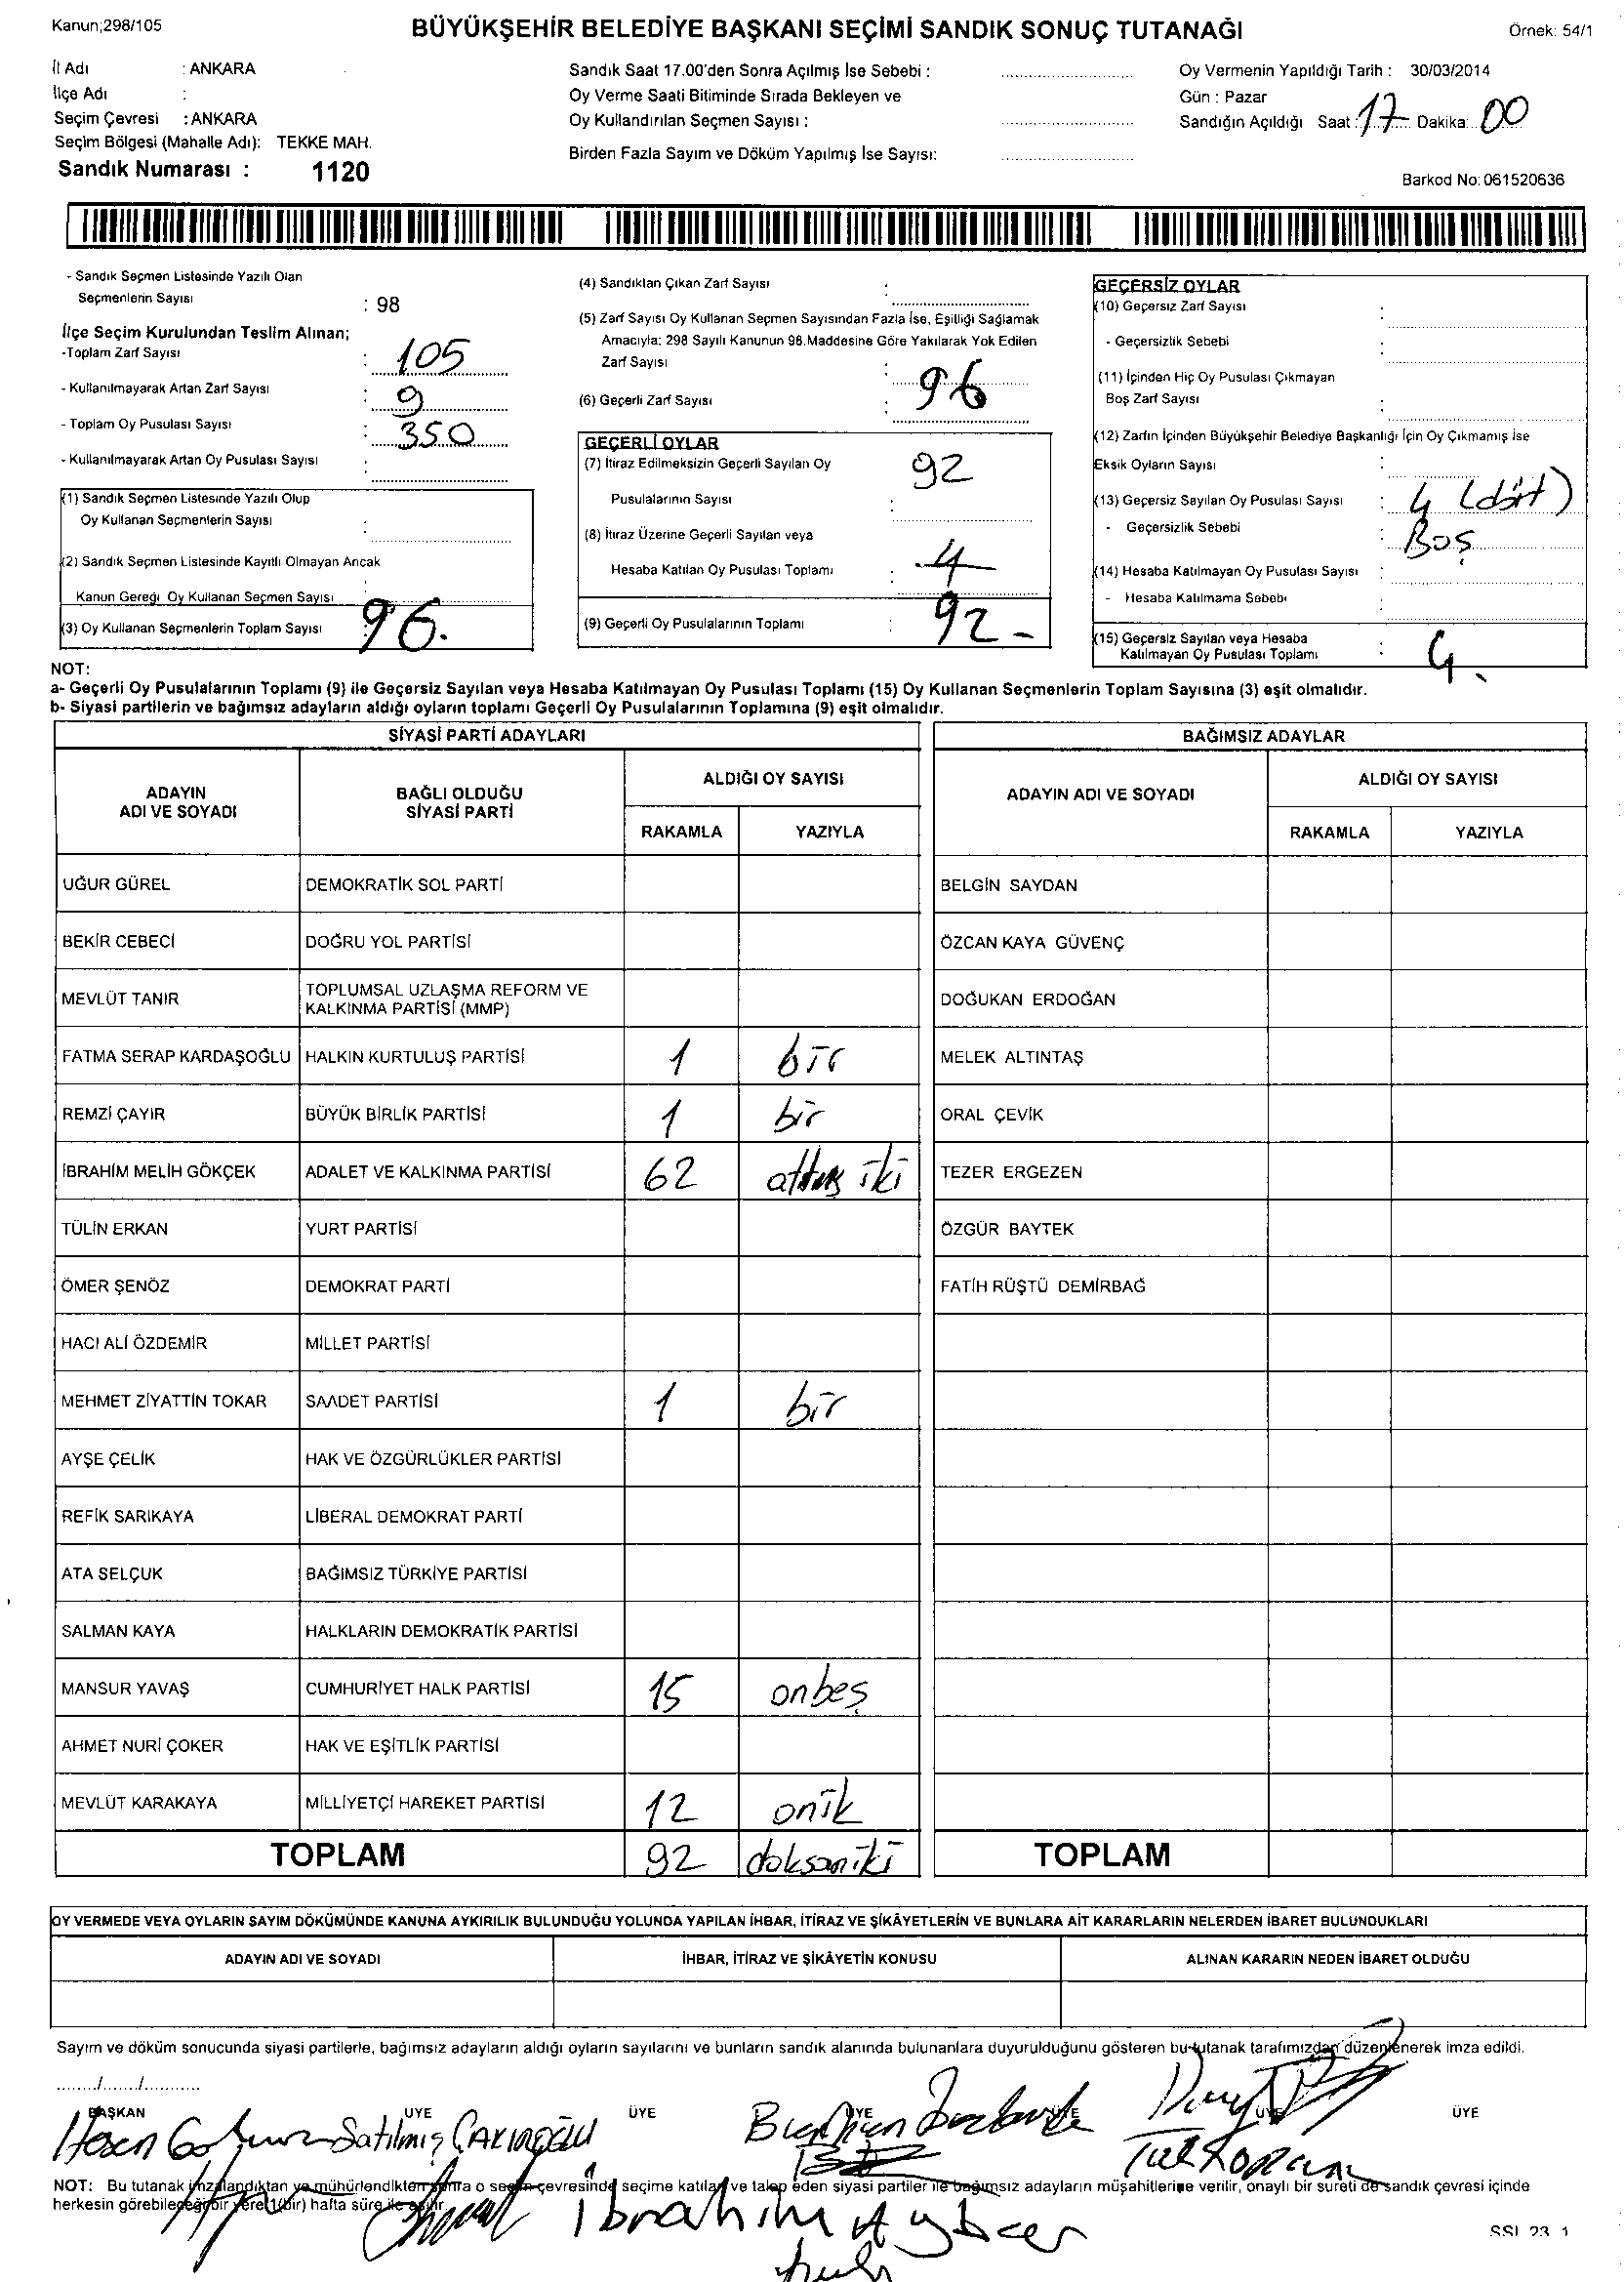 Kanun;298/105
BÜYÜKŞEHİR BELEDİYE BAŞKANI SEÇİMİ SANDIK SONUÇ TUTANAĞI
Örnek: 54/1
İl Adı : ANKARA
İlçe Adı :
Seçim Çevresi : ANKARA
Seçim Bölgesi (Mahalle Adı): TEKKE MAH.
Sandık Numarası : 1120
Sandık Saat 17.00'den Sonra Açılmış İse Sebebi :
Oy Verme Saati Bitiminde Sırada Bekleyen ve
Oy Kullandırılan Seçmen Sayısı :
Birden Fazla Sayım ve Döküm Yapılmış İse Sayısı:
Oy Vermenin Yapıldığı Tarih : 30/03/2014
Gün : Pazar
Sandığın Açıldığı Saat : 17 Dakika: 00
Barkod No: 061520636
- Sandık Seçmen Listesinde Yazılı Olan
Seçmenlerin Sayısı : 98
İlçe Seçim Kurulundan Teslim Alınan;
-Toplam Zarf Sayısı : 105
- Kullanılmayarak Artan Zarf Sayısı : 9
- Toplam Oy Pusulası Sayısı : 350
- Kullanılmayarak Artan Oy Pusulası Sayısı :
(1) Sandık Seçmen Listesinde Yazılı Olup
Oy Kullanan Seçmenlerin Sayısı :
(2) Sandık Seçmen Listesinde Kayıtlı Olmayan Ancak
Kanun Gereği Oy Kullanan Seçmen Sayısı
(3) Oy Kullanan Seçmenlerin Toplam Sayısı : 96.
(4) Sandıktan Çıkan Zarf Sayısı :
(5) Zarf Sayısı Oy Kullanan Seçmen Sayısından Fazla İse, Eşitliği Sağlamak
Amacıyla; 298 Sayılı Kanunun 98.Maddesine Göre Yakılarak Yok Edilen
Zarf Sayısı :
(6) Geçerli Zarf Sayısı : 96
GEÇERLİ OYLAR
(7) İtiraz Edilmeksizin Geçerli Sayılan Oy 92
Pusulalarının Sayısı :
(8) İtiraz Üzerine Geçerli Sayılan veya
Hesaba Katılan Oy Pusulası Toplamı : 4
(9) Geçerli Oy Pusulalarının Toplamı : 92 -
GEÇERSİZ OYLAR
(10) Geçersiz Zarf Sayısı :
- Geçersizlik Sebebi :
(11) İçinden Hiç Oy Pusulası Çıkmayan
Boş Zarf Sayısı :
(12) Zarfın İçinden Büyükşehir Belediye Başkanlığı İçin Oy Çıkmamış İse
Eksik Oyların Sayısı :
(13) Geçersiz Sayılan Oy Pusulası Sayısı : 4 (dört)
- Geçersizlik Sebebi : Boş
(14) Hesaba Katılmayan Oy Pusulası Sayısı :
- Hesaba Katılmama Sebebi
(15) Geçersiz Sayılan veya Hesaba
Katılmayan Oy Pusulası Toplamı : 4.
NOT:
a- Geçerli Oy Pusulalarının Toplamı (9) ile Geçersiz Sayılan veya Hesaba Katılmayan Oy Pusulası Toplamı (15) Oy Kullanan Seçmenlerin Toplam Sayısına (3) eşit olmalıdır.
b- Siyasi partilerin ve bağımsız adayların aldığı oyların toplamı Geçerli Oy Pusulalarının Toplamına (9) eşit olmalıdır.
SİYASİ PARTİ ADAYLARI
ADAYIN ADI VE SOYADI BAĞLI OLDUĞU SİYASİ PARTİ ALDIĞI OY SAYISI
RAKAMLA YAZIYLA
UĞUR GÜREL DEMOKRATİK SOL PARTİ
BEKİR CEBECİ DOĞRU YOL PARTİSİ
MEVLÜT TANIR TOPLUMSAL UZLAŞMA REFORM VE KALKINMA PARTİSİ (MMP)
FATMA SERAP KARDAŞOĞLU HALKIN KURTULUŞ PARTİSİ 1 bir
REMZİ ÇAYIR BÜYÜK BİRLİK PARTİSİ 1 bir
İBRAHİM MELİH GÖKÇEK ADALET VE KALKINMA PARTİSİ 62 altmış iki
TÜLİN ERKAN YURT PARTİSİ
ÖMER ŞENÖZ DEMOKRAT PARTİ
HACI ALİ ÖZDEMİR MİLLET PARTİSİ
MEHMET ZİYATTİN TOKAR SAADET PARTİSİ 1 bir
AYŞE ÇELİK HAK VE ÖZGÜRLÜKLER PARTİSİ
REFİK SARIKAYA LİBERAL DEMOKRAT PARTİ
ATA SELÇUK BAĞIMSIZ TÜRKİYE PARTİSİ
SALMAN KAYA HALKLARIN DEMOKRATİK PARTİSİ
MANSUR YAVAŞ CUMHURİYET HALK PARTİSİ 15 onbeş
AHMET NURİ ÇOKER HAK VE EŞİTLİK PARTİSİ
MEVLÜT KARAKAYA MİLLİYETÇİ HAREKET PARTİSİ 12 onik
TOPLAM 92 doksaniki
BAĞIMSIZ ADAYLAR
ADAYIN ADI VE SOYADI ALDIĞI OY SAYISI
RAKAMLA YAZIYLA
BELGİN SAYDAN
ÖZCAN KAYA GÜVENÇ
DOĞUKAN ERDOĞAN
MELEK ALTINTAŞ
ORAL ÇEVİK
TEZER ERGEZEN
ÖZGÜR BAYTEK
FATİH RÜŞTÜ DEMİRBAĞ
TOPLAM
OY VERMEDE VEYA OYLARIN SAYIM DÖKÜMÜNDE KANUNA AYKIRILIK BULUNDUĞU YOLUNDA YAPILAN İHBAR, İTİRAZ VE ŞİKÂYETLERİN VE BUNLARA AİT KARARLARIN NELERDEN İBARET BULUNDUKLARI
ADAYIN ADI VE SOYADI İHBAR, İTİRAZ VE ŞİKÂYETİN KONUSU ALINAN KARARIN NEDEN İBARET OLDUĞU
Sayım ve döküm sonucunda siyasi partilerle, bağımsız adayların aldığı oyların sayılarını ve bunların sandık alanında bulunanlara duyurulduğunu gösteren bu tutanak tarafımızdan düzenlenerek imza edildi.
......./......./...........
BAŞKAN ÜYE ÜYE ÜYE ÜYE ÜYE ÜYE
Hasan Satılmış
NOT: Bu tutanak imzalandıktan ve mühürlendikten sonra o seçim çevresinde seçime katılan ve talep eden siyasi partiler ile bağımsız adayların müşahitlerine verilir, onaylı bir sureti de sandık çevresi içinde
herkesin görebileceği bir yere 1(bir) hafta süre ile asılır.
İbrahim
SSI 23 1